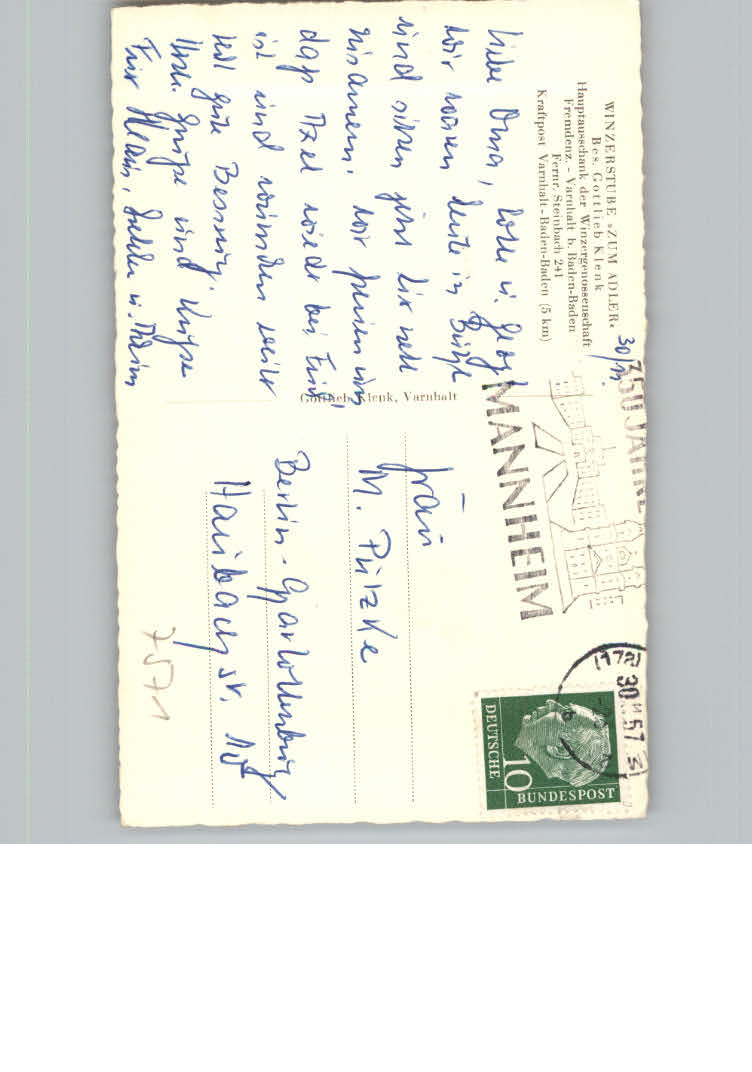 WINZERSTUBE »ZUM ADLER«
Bes. Gottlieb Klenk
Hauptausschank der Winzergenossenschaft
Fremdenz. - Varnhalt b. Baden-Baden
Fernr. Steinbach 241
Kraftpost Varnhalt-Baden-Baden (5 km)
30/11.
Liebe Oma, Lotte u. Georg
wir waren heute in Bühl
und sitzen jetzt hier nett
zusammen. Wir freuen uns
daß Axel wieder bei Euch
ist und wünschen weiter
recht gute Besserung.
Herzl. Grüße und Küsse
Eure
Gottlieb Klenk, Varnhalt
350 JAHRE
MANNHEIM
(17a)
30.11.57
DEUTSCHE
BUNDESPOST
10
Frau
M. Pürzke
Berlin-Charlottenburg
Haubachstr.
7571